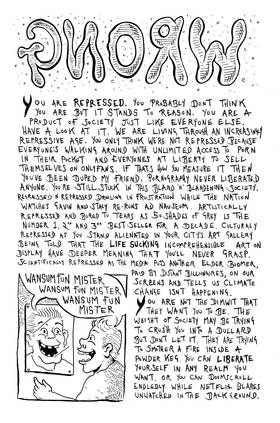 WRONG
YOU ARE REPRESSED. YOU PROBABLY DON'T THINK
YOU ARE BUT IT STANDS TO REASON. YOU ARE A
PRODUCT OF SOCIETY JUST LIKE EVERYONE ELSE.
HAVE A LOOK AT IT. WE ARE LIVING THROUGH AN INCREASINGLY
REPRESSIVE AGE. YOU ONLY THINK WE'RE NOT REPRESSED BECAUSE
EVERYONE'S WALKING AROUND WITH UNLIMITED ACCESS TO PORN
IN THEIR POCKET AND EVERYONE'S AT LIBERTY TO SELL
THEMSELVES ON ONLYFANS. IF THAT'S HOW YOU MEASURE IT THEN
YOU'VE BEEN DUPED MY FRIEND. PORNOGRAPHY NEVER LIBERATED
ANYONE. YOU'RE STILL STUCK IN THIS BLAND 'N' BLANDENING SOCIETY.
REPRESSED DROOLING IN FRUSTRATION WHILE THE NATION
WATCHES SAVIN AND STAY RE-RUNS AD NAUSEAM. ARTISTICALLY
REPRESSED AND BORED TO TEARS AS 50 SHADES OF GREY IS THE
NUMBER 1, 2ND AND 3RD BEST SELLER FOR A DECADE. CULTURALLY
REPRESSED AS YOU STAND ALIENATED IN YOUR CITY'S ART GALLERY
BEING TOLD THAT THE LIFE SUCKING INCOMPREHENSIBLE ART ON
DISPLAY HAVE DEEPER MEANING THAT YOU'LL NEVER GRASP.
SCIENTIFICALLY REPRESSED AS THE MEDIA PUTS ANOTHER ELDER BOOMER,
PAID BY DISTANT BILLIONAIRES, ON OUR
SCREENS AND TELLS US CLIMATE
CHANGE ISN'T HAPPENING.
YOU ARE NOT THE DIMWIT THAT
THEY WANT YOU TO BE. THE
WEIGHT OF SOCIETY MAY BE TRYING
TO CRUSH YOU INTO A DULLARD
BUT DON'T LET IT. THEY ARE TRYING
TO SMOTHER A FIRE INSIDE A
POWDER KEG. YOU CAN LIBERATE
YOURSELF IN ANY REALM YOU
WANT, OR YOU CAN DOOMSCROLL
ENDLESSLY WHILE NETFLIX BLARES
UNWATCHED IN THE BACKGROUND.
WANSUM FUN MISTER
WANSUM FUN MISTER
WANSUM FUN
MISTER